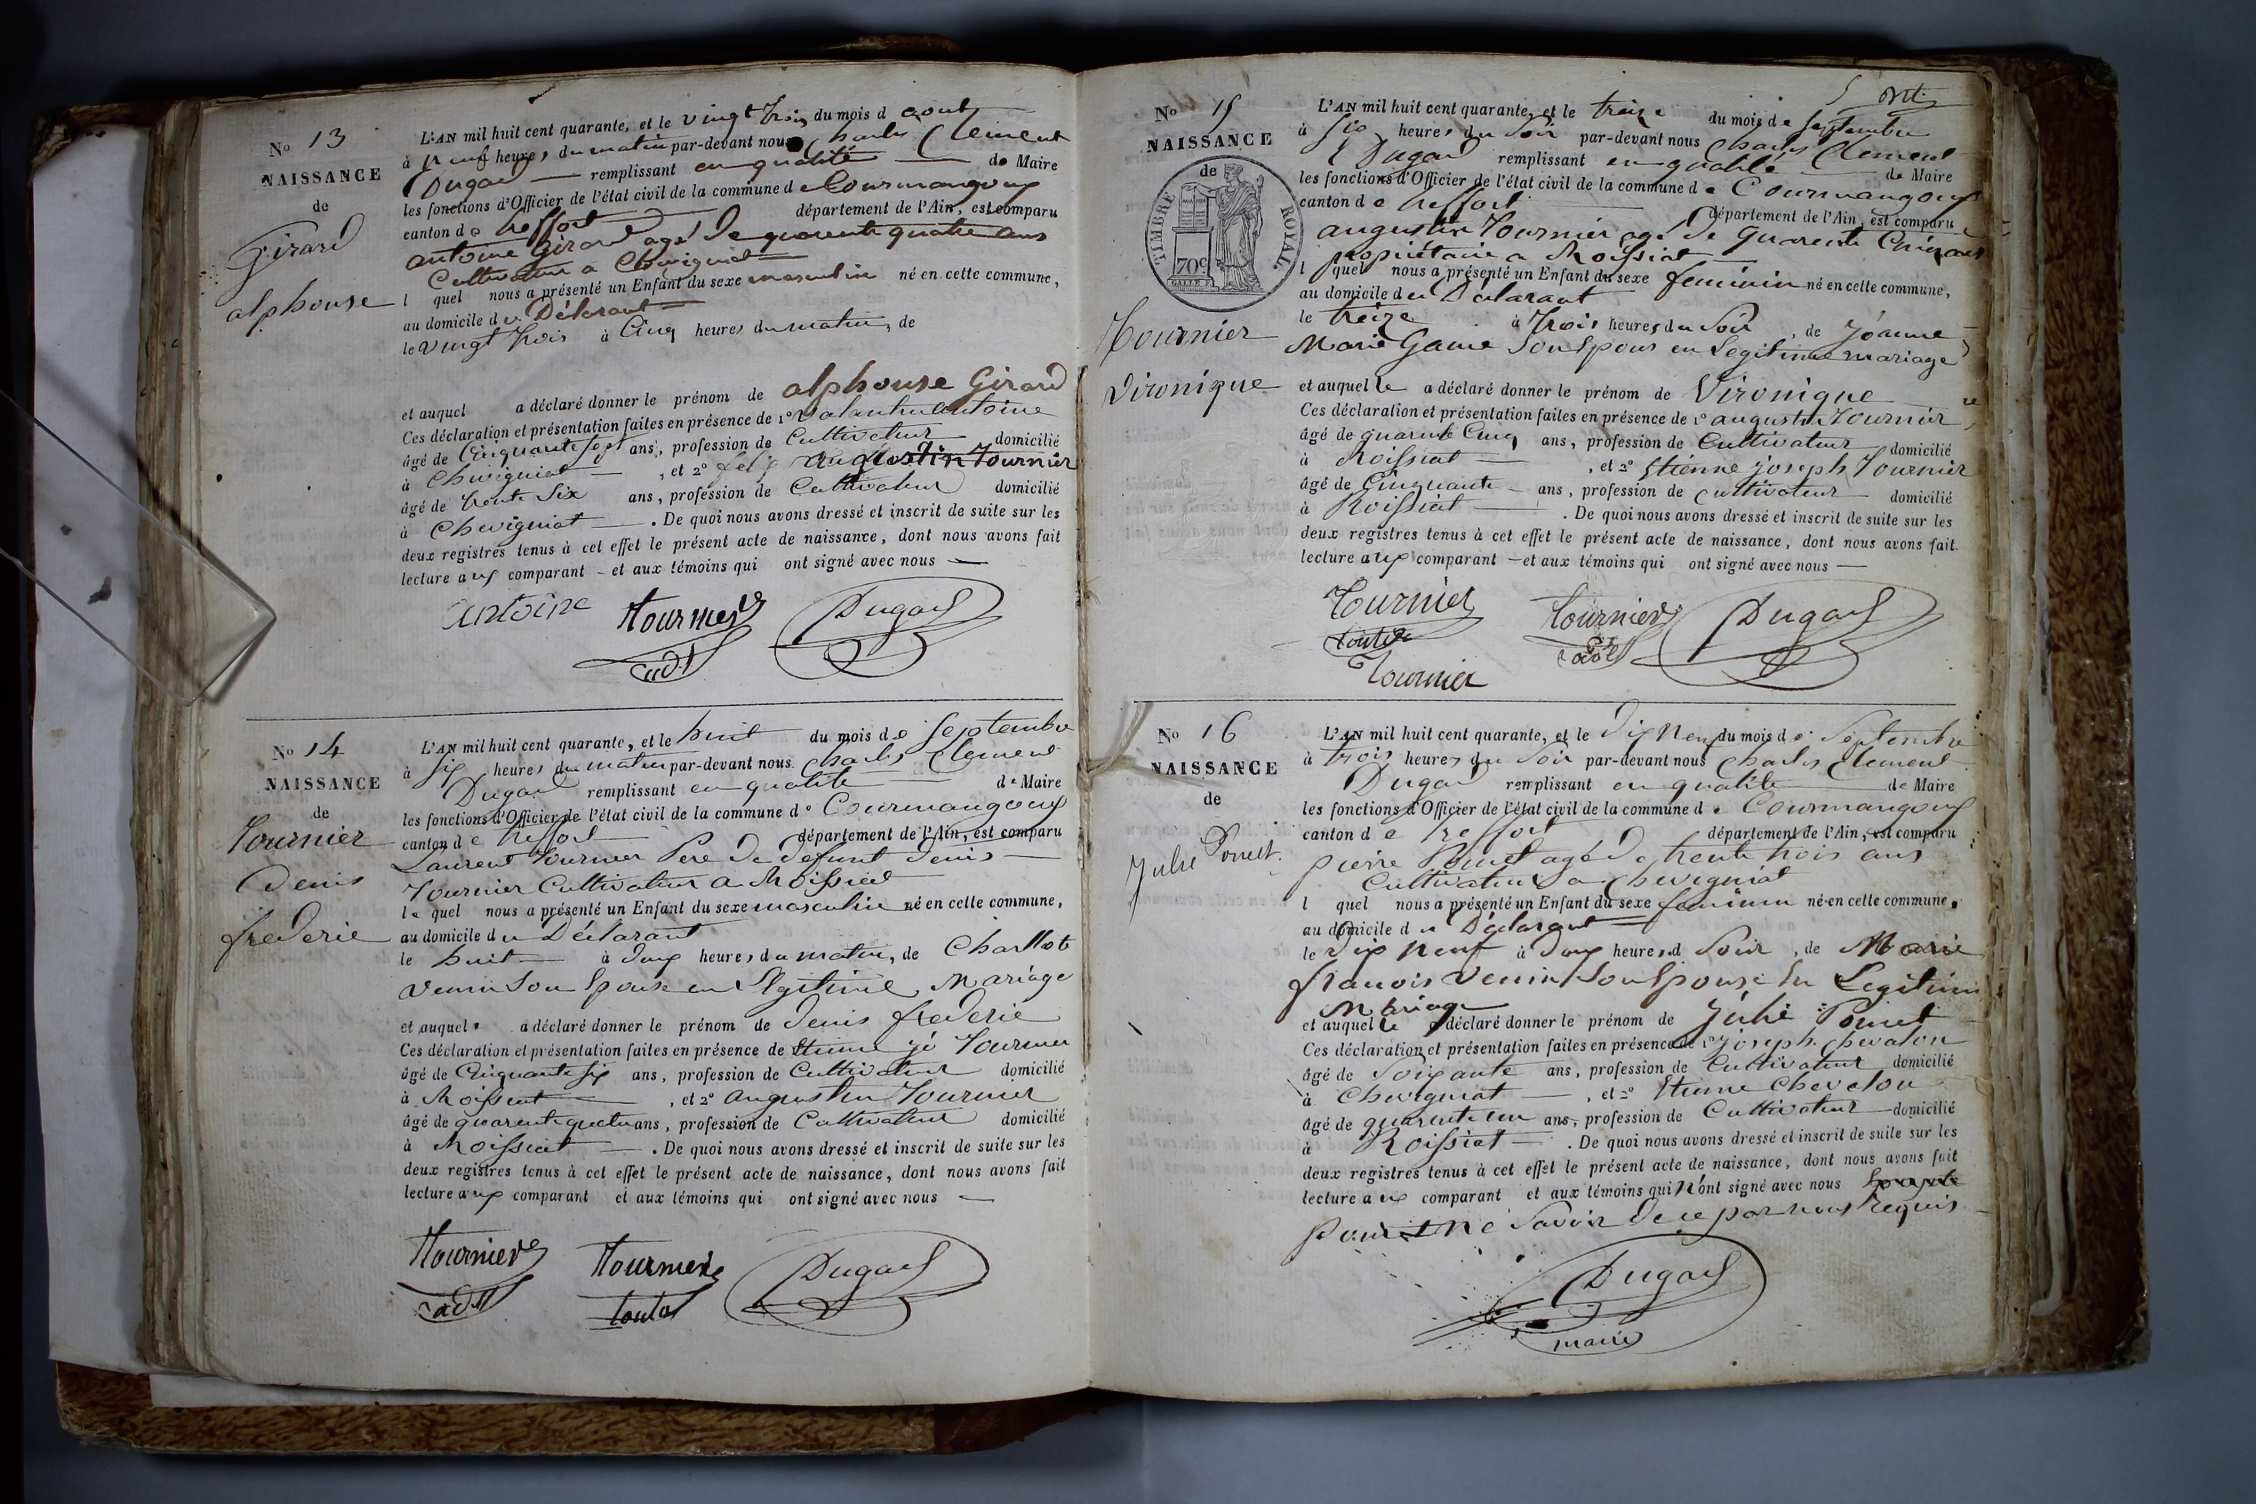 No 13
NAISSANCE
de
Girard
alphonse
L'AN mil huit cent quarante, et le vingt trois du mois d aout
à neuf heures du matin par-devant nous Charles Clement
Dugad remplissant en qualité de Maire
les fonctions d'Officier de l'état civil de la commune de Courmangoux
canton de treffort département de l'Ain, est comparu
antoine Girard agé de quarente quatre ans
Cultivateur a Chevigniat
l quel nous a présenté un Enfant du sexe masculin né en cette commune,
au domicile du Déclarant
le vingt trois à Cinq heures du matin, de
et auquel a déclaré donner le prénom de alphonse Girard
Ces déclaration et présentation faites en présence de 1º antoine
âgé de Cinquante sept ans, profession de Cultivateur domicilié
à Chevigniat , et 2º augustin Tournier
âgé de trente six ans, profession de Cultivateur domicilié
à Chevigniat . De quoi nous avons dressé et inscrit de suite sur les
deux registres tenus à cet effet le présent acte de naissance, dont nous avons fait
lecture aux comparant et aux témoins qui ont signé avec nous
antoine Tournier Dugad
adt
No 14
NAISSANCE
de
Tournier
denis
frederic
L'AN mil huit cent quarante, et le huit du mois de Septembre
à six heures du matin par-devant nous Charles Clement
Dugad remplissant en qualité de Maire
les fonctions d'Officier de l'état civil de la commune de Courmangoux
canton de treffort département de l'Ain, est comparu
Laurent Tournier Pere de defunt denis
Tournier Cultivateur a Roissiat
le quel nous a présenté un Enfant du sexe masculin né en cette commune,
au domicile du Déclarant
le huit à deux heures du matin, de Charllote
Venin son Epouse en Legitime Mariage
et auquel a déclaré donner le prénom de denis frederic
Ces déclaration et présentation faites en présence de Etienne jh Tournier
âgé de Cinquante six ans, profession de Cultivateur domicilié
à Roissiat , et 2º augustin Tournier
âgé de quarente quatre ans, profession de Cultivateur domicilié
à Roissiat . De quoi nous avons dressé et inscrit de suite sur les
deux registres tenus à cet effet le présent acte de naissance, dont nous avons fait
lecture aux comparant et aux témoins qui ont signé avec nous
Tournier Tournier Dugad
adt
No 15
NAISSANCE
de
TIMBRE ROYAL
70c
Tournier
Vironique
L'AN mil huit cent quarante, et le treize du mois de Septembre
à six heures du Soir par-devant nous Charles Clement
Dugad remplissant en qualité de Maire
les fonctions d'Officier de l'état civil de la commune de Courmangoux
canton de treffort département de l'Ain, est comparu
augustin Tournier agé de quarente Cinq ans
propriétaire a Roissiat
l quel nous a présenté un Enfant du sexe feminin né en cette commune,
au domicile du Déclarant
le treize à trois heures du Soir, de Jéanne
Marie Game son Epouse en Legitime mariage
et auquel le a déclaré donner le prénom de Vironique
Ces déclaration et présentation faites en présence de 1º augustin Tournier
âgé de quarente Cinq ans, profession de Cultivateur domicilié
à Roissiat , et 2º Etienne joseph Tournier
âgé de Cinquante ans, profession de Cultivateur domicilié
à Roissiat . De quoi nous avons dressé et inscrit de suite sur les
deux registres tenus à cet effet le présent acte de naissance, dont nous avons fait
lecture aux comparant et aux témoins qui ont signé avec nous
Tournier Tournier Dugad
Tournier
No 16
NAISSANCE
de
Pomet
Julie
L'AN mil huit cent quarante, et le Dix Neuf du mois de Septembre
à trois heures du Soir par-devant nous Charles Clement
Dugad remplissant en qualité de Maire
les fonctions d'Officier de l'état civil de la commune de Courmangoux
canton de treffort département de l'Ain, est comparu
pierre Pomet agé de trente trois ans
Cultivateur a Chevigniat
l quel nous a présenté un Enfant du sexe feminin né en cette commune,
au domicile du Déclarant
le dix neuf à deux heures d Soir, de Marie
franoise Venin son Epouse En Legitime
Mariage
et auquel le a déclaré donner le prénom de Julie Pomet
Ces déclaration et présentation faites en présence de 1º joseph chevalon
âgé de Soixante ans, profession de Cultivateur domicilié
à Chevigniat , et 2º Etienne Chevalon
âgé de quarente un ans, profession de Cultivateur domicilié
à Roissiat . De quoi nous avons dressé et inscrit de suite sur les
deux registres tenus à cet effet le présent acte de naissance, dont nous avons fait
lecture aux comparant et aux témoins qui n'ont signé avec nous
pour Ne Savoir de ce par nous Requis
Dugad
maire